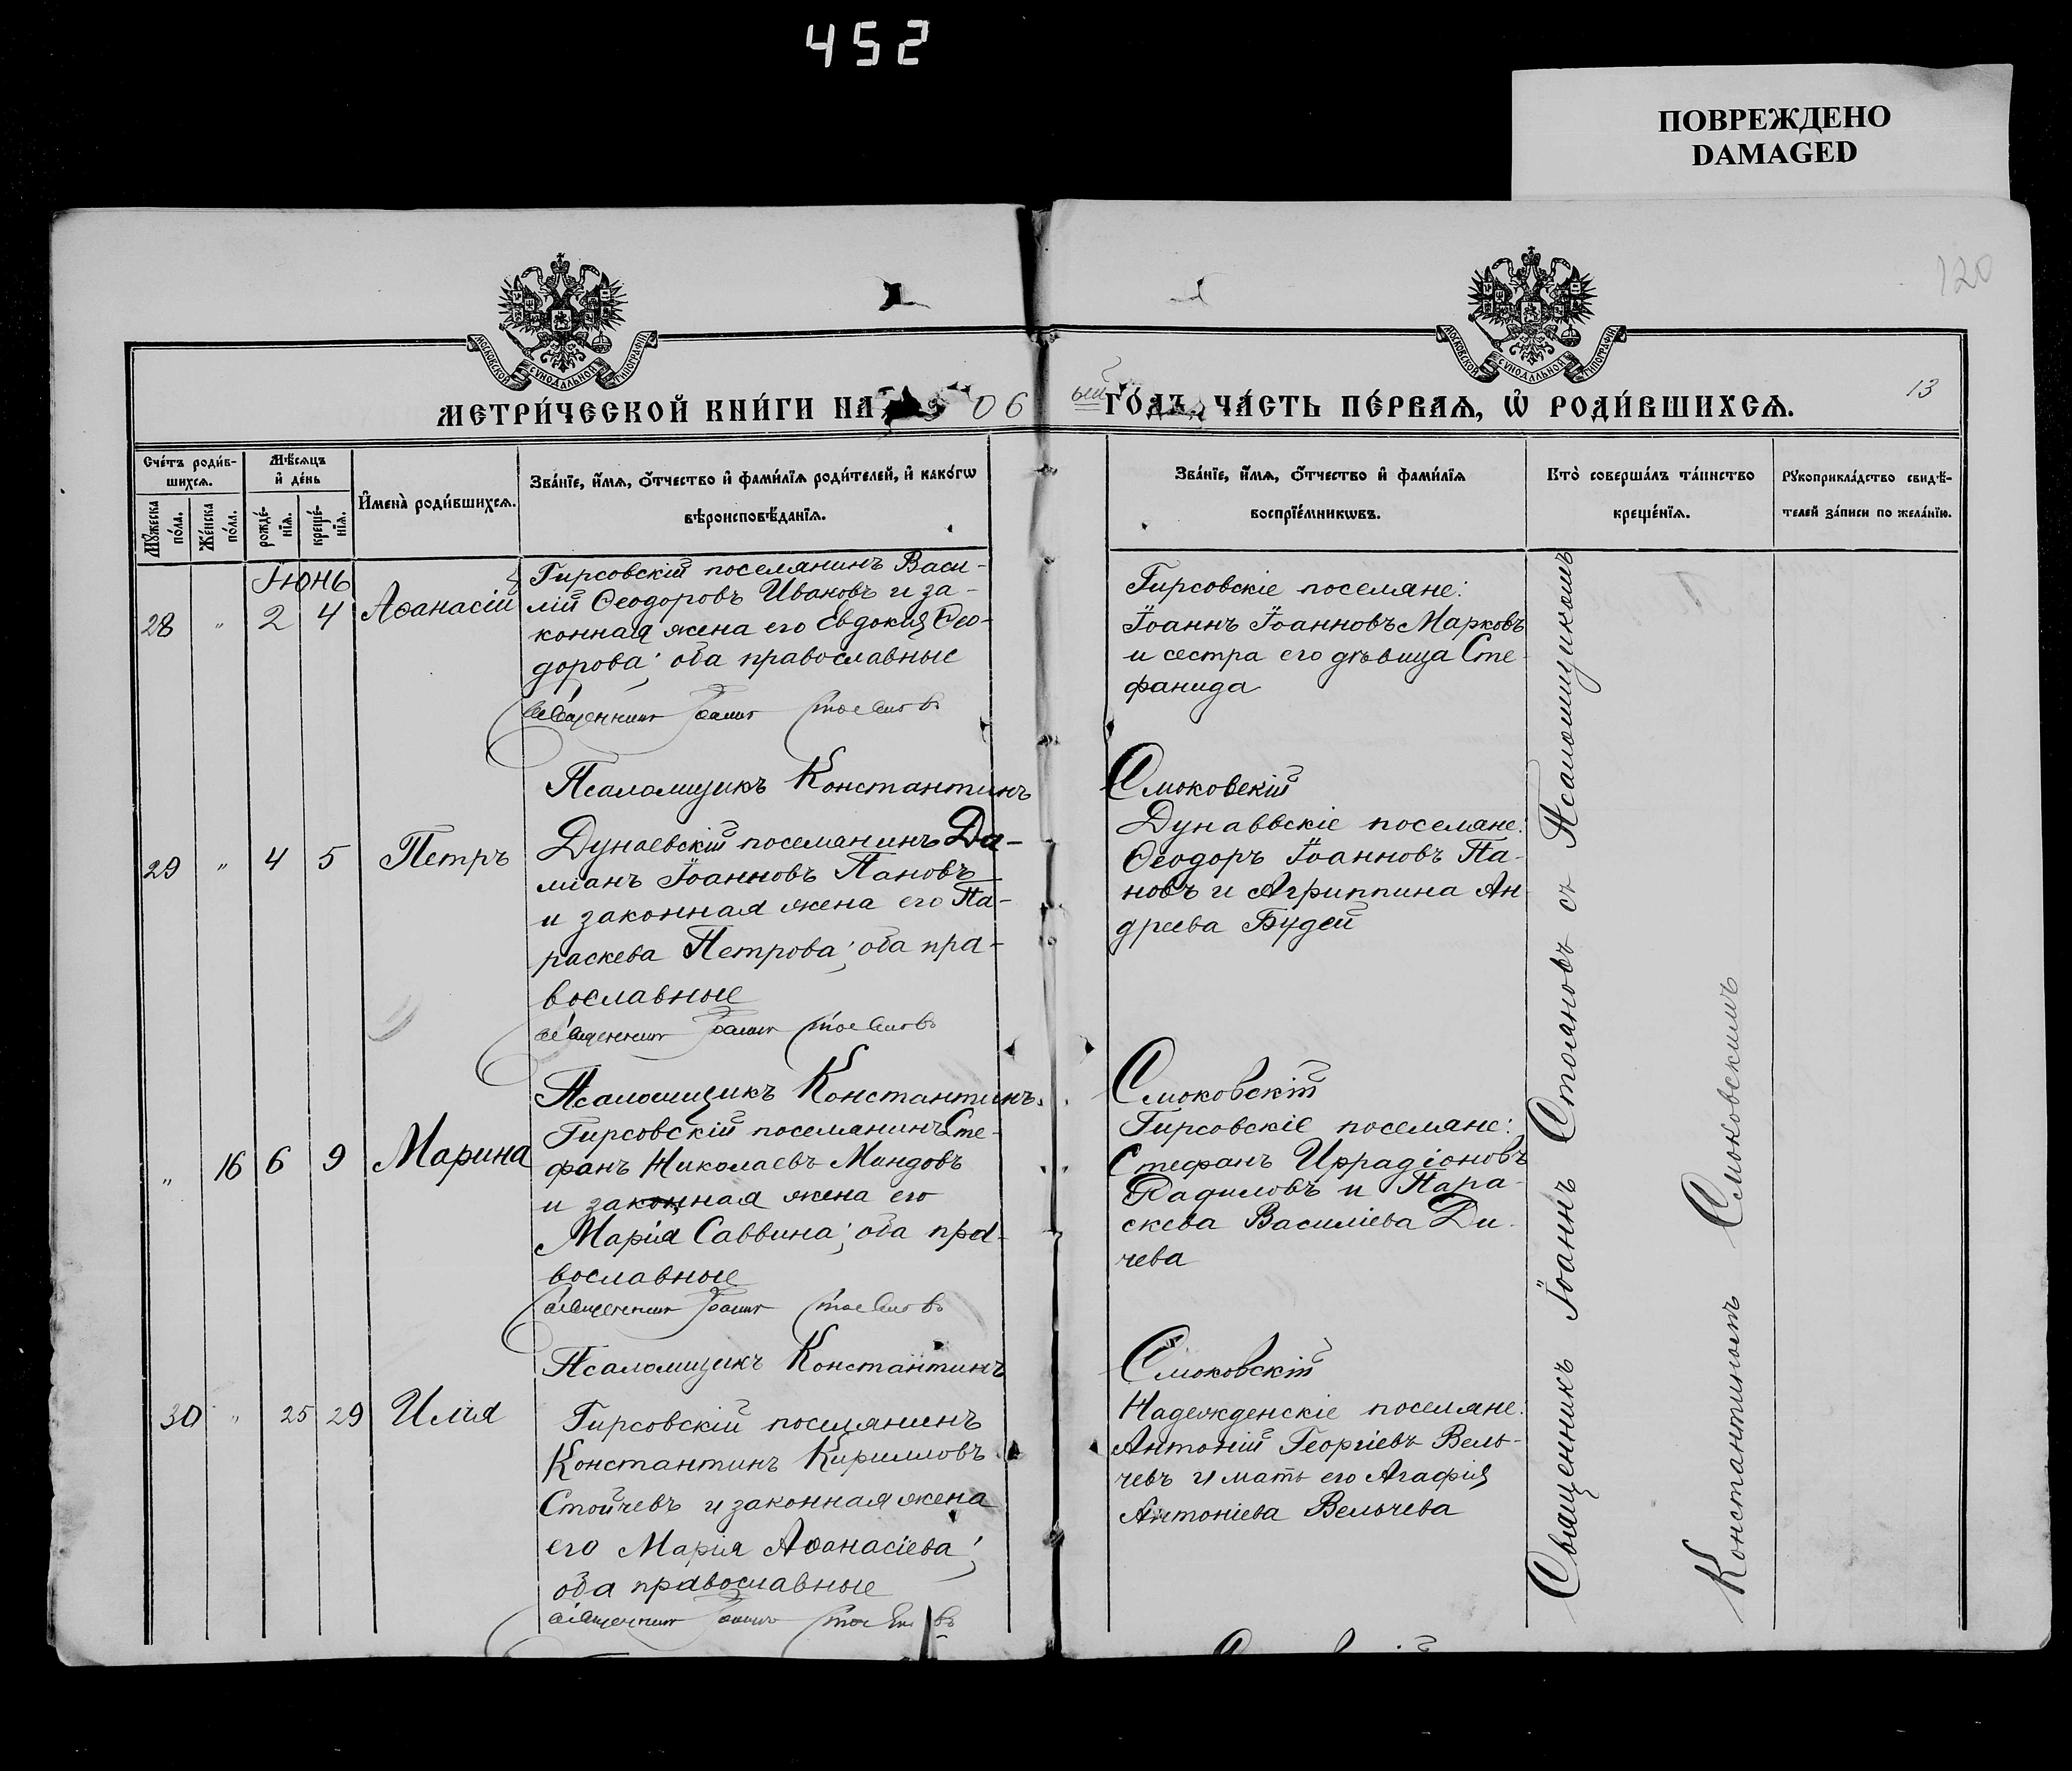 452
ПОВРЕЖДЕНО
DAMAGED
120
МОСКОВСКОЙ СѴНОДАЛЬНОЙ ТИПОГРАФІИ
МОСКОВСКОЙ СѴНОДАЛЬНОЙ ТИПОГРАФІИ
13
МЕТРИ́ЧЕСКОЙ КНИ́ГИ НА 06 ый ГО́ДЪ, ЧА́СТЬ ПЕ́РВАЯ, Ѡ҆ РОДИ́ВШИХСЯ.
Сче́тъ роди́в-
шихся.
Мѣ́сяцъ
и҆ де́нь
Мꙋ́жеска
по́ла.
Же́нска
по́ла.
рожде́-
нїя.
креще́-
нїя.
И҆мена̀ роди́вшихся.
Зва́нїе, и҆́мя, ѻ҆́тчество и҆ фами́лїя роди́телей, и҆ како́гѡ
вѣроисповѣ́данїя.
Зва́нїе, и҆́мя, ѻ҆́тчество и҆ фами́лїя
воспрїе́мникѡвъ.
Кто̀ соверша́лъ та́инство
креще́нїя.
Рꙋкоприкла́дство свидѣ́-
телей за́писи по жела́нїю.
Іюнь
28 " 2 4 Аѳанасій
Гирсовскій поселянинъ Васи-
лій Ѳеодоровъ Ивановъ и за-
конная жена его Евдокія Ѳео-
дорова; оба православные
Священникъ Іоаннъ Стояновъ
Псаломщикъ Константинъ
Гирсовскіе поселяне:
Іоаннъ Іоанновъ Марковъ
и сестра его дѣвица Сте-
фанида
Смоковскій
29 " 4 5 Петръ
Дунаевскій поселянинъ Да-
міанъ Іоанновъ Пановъ
и законная жена его Па-
раскева Петрова; оба пра-
вославные
Священникъ Іоаннъ Стояновъ
Псаломщикъ Константинъ
Дунаевскіе поселяне:
Ѳеодоръ Іоанновъ Па-
новъ и Агриппина Ан
дреева Будей
Смоковскій
" 16 6 9 Марина
Гирсовскій поселянинъ Сте-
фанъ Николаевъ Миндовъ
и законная жена его
Марія Саввина; оба пра-
вославные
Священникъ Іоаннъ Стояновъ
Псаломщикъ Константинъ
Гирсовскіе поселяне:
Стефанъ Иррадіоновъ
Радиловъ и Пара-
скева Василіева Ди-
чева
Смоковскій
30 " 25 29 Илія
Гирсовскій поселянинъ
Константинъ Кирилловъ
Стойчевъ и законная жена
его Марія Аѳанасіева;
оба православные
Священникъ Іоаннъ Стояновъ
Надежденскіе поселяне:
Антоній Георгіевъ Вель-
чевъ и мать его Агафія
Антоніева Вельчева
Священникъ Іоаннъ Стояновъ съ Псаломщикомъ
Константиномъ Смоковскимъ